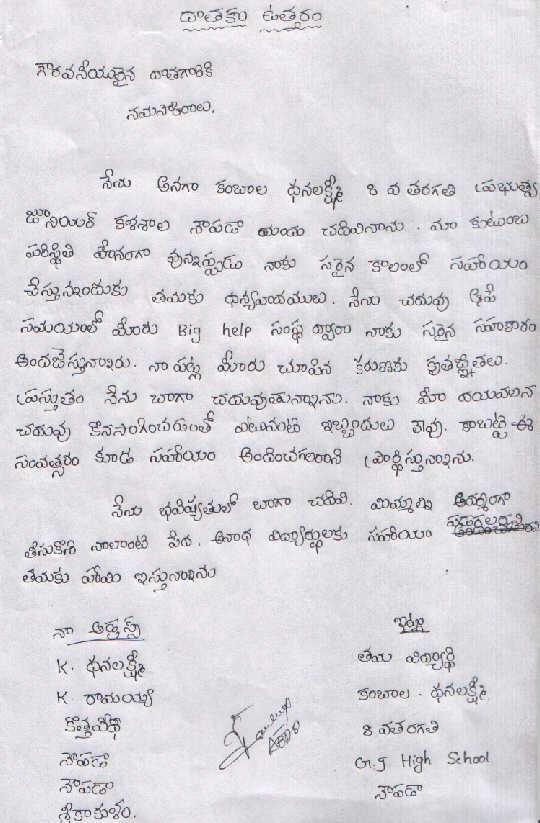 దాతకు ఉత్తరం
గౌరవనీయులైన దాతగారికి
నమస్కారాలు.
నేను అనగా కంబాల ధనలక్ష్మి 8 వ తరగతి ప్రభుత్వ
జూనియర్ కళాశాల నౌపడా యందు చదివినాను. మా కుటుంబ
పరిస్థితి హీనంగా వున్నప్పుడు నాకు సరైన కాలంలో సహాయం
చేస్తున్నందుకు తమకు ధన్యవాదములు. నేను చదువు ఆపే
సమయంలో మీరు Big help సంస్థ ద్వారా నాకు సరైన సహకారం
అందజేస్తున్నారు. నా పట్ల మీరు చూపిన కరుణకు కృతజ్ఞతలు.
ప్రస్తుతం నేను బాగా చదువుతున్నాను. నాకు మీ దయవలన
చదువు కొనసాగించడంలో ఎటువంటి ఇబ్బందులు లేవు. కాబట్టి ఈ
సంవత్సరం కూడ సహాయం అందించగలరని ప్రార్థిస్తున్నాను.
నేను భవిష్యతులో బాగా చదివి. మిమ్మల్ని ఆదర్శంగా
తీసుకొని నాలాంటి పేద. అనాధ విద్యార్థులకు సహాయం
తమకు హామి ఇస్తున్నాను
నా అడ్రస్స్
K. ధనలక్ష్మి
K. రామయ్య
కొత్తవీధి
నౌపడా
నౌపడా
శ్రీకాకుళం.
ఇట్లు
తమ విద్యార్థి
కంబాల. ధనలక్ష్మి
8 వతరగతి
G.J High School
నౌపడా